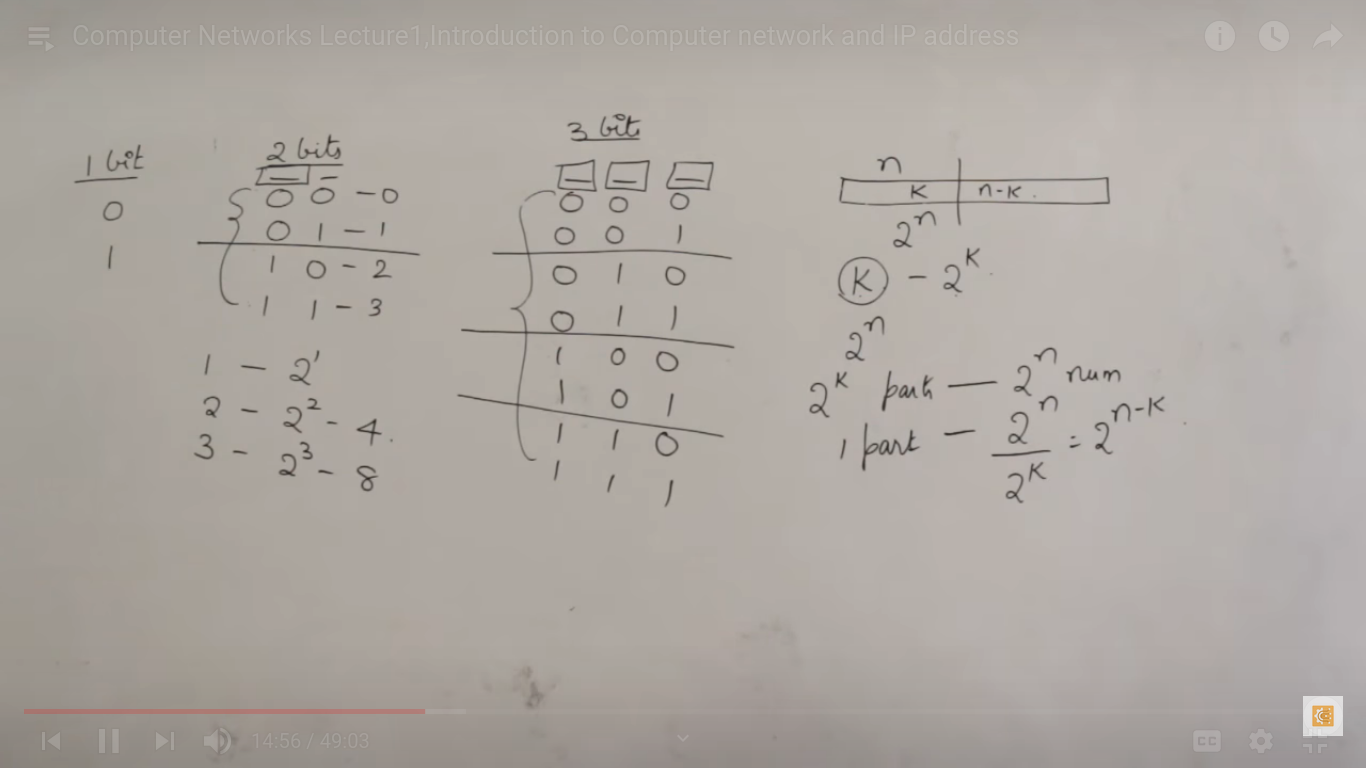 Computer Networks Lecture1,Introduction to Computer network and IP address
1 bit
0
1
2 bits
0 0 - 0
0 1 - 1
1 0 - 2
1 1 - 3
1 - 2¹
2 - 2² - 4.
3 - 2³ - 8
3 bit
0 0 0
0 0 1
0 1 0
0 1 1
1 0 0
1 0 1
1 1 0
1 1 1
n
K n-K.
2ⁿ
K - 2ᴷ.
2ⁿ
2ᴷ part — 2ⁿ num
1 part — 2ⁿ/2ᴷ = 2ⁿ⁻ᴷ.
14:56 / 49:03
CC